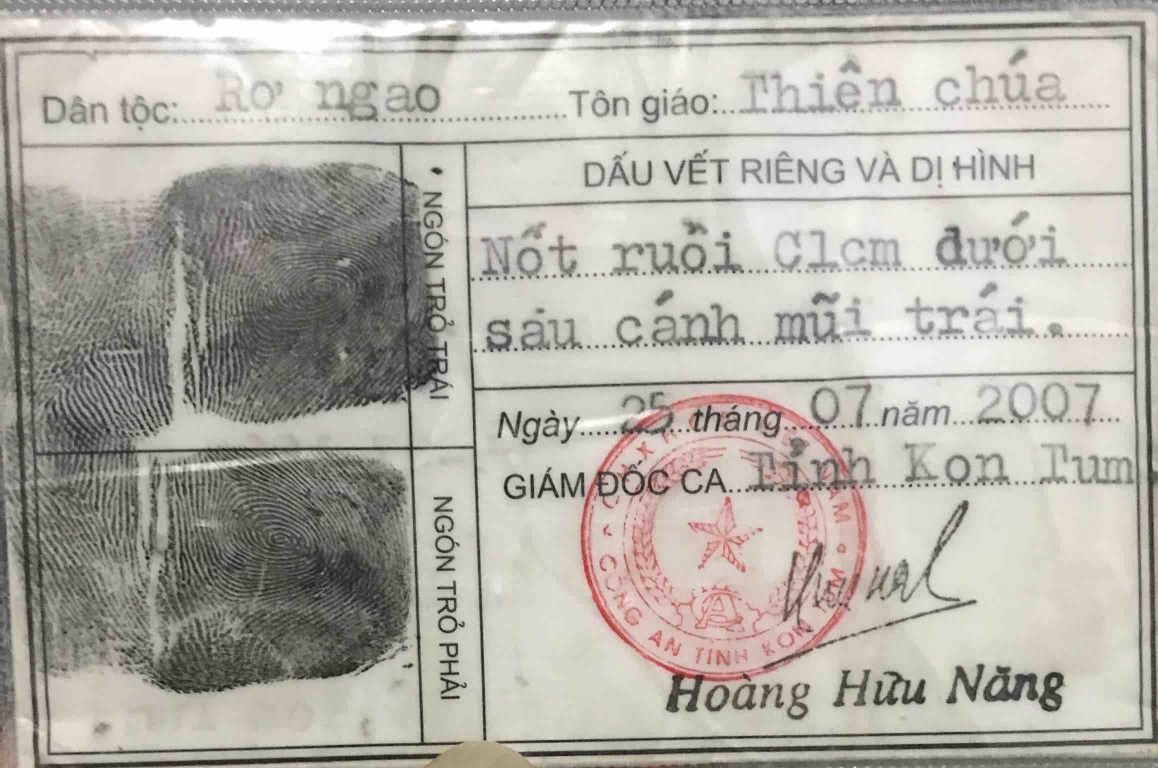 Dân tộc: Rơ ngao Tôn giáo: Thiên chúa
DẤU VẾT RIÊNG VÀ DỊ HÌNH
Nốt ruồi C1cm dưới
sáu cánh mũi trái.
NGÓN TRỎ TRÁI
NGÓN TRỎ PHẢI
Ngày 25 tháng 07 năm 2007
GIÁM ĐỐC CA Tỉnh Kon Tum
CÔNG AN TỈNH KON TUM
Hoàng Hữu Năng